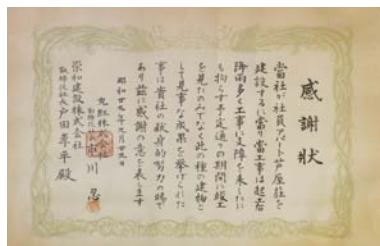 感謝状
当社が社員アパート芦屋荘を
建設するに当り当工事は起工后
降雨多く工事に支障を来したに
も拘らず予定通りの期間に竣工
を見たのみでなく此の種の建物と
して見事な成果を挙げられた
事は貴社の献身的努力の賜で
あり茲に感謝の意を表します
昭和廿九年九月廿九日
丸紅株式会社
取締役社長 市川 忍
栄和建設株式会社
取締役社長 戸田専平殿